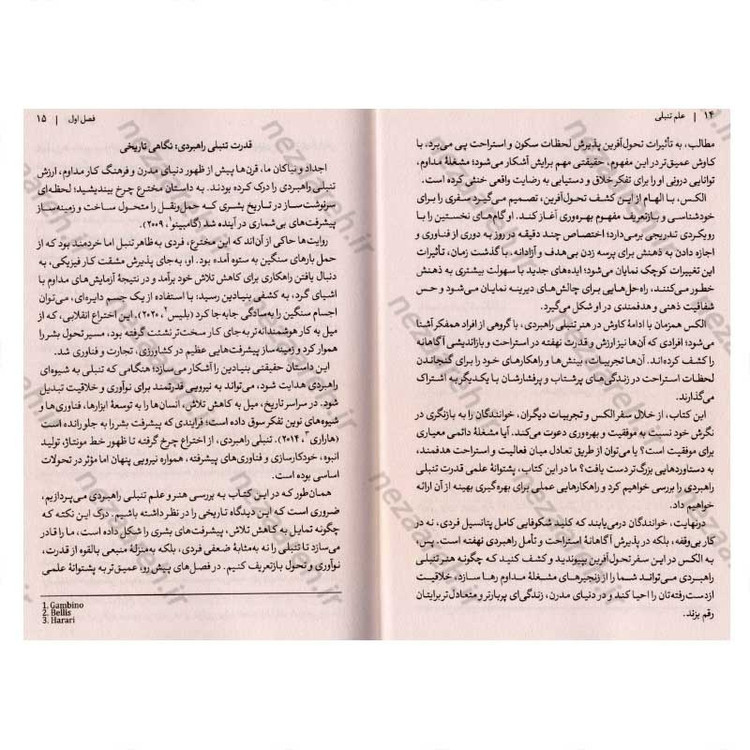 ۱۴ | علم تنبلی
مطالب، به تأثیرات تحول‌آفرین پذیرش لحظات سکون و استراحت پی می‌برد، با
کاوش عمیق‌تر در این مفهوم، حقیقتی مهم برایش آشکار می‌شود؛ مشغلهٔ مداوم،
توانایی درونی او را برای تفکر خلاق و دستیابی به رضایت واقعی خنثی کرده است.
الکس، با الهام از این کشف تحول‌آفرین، تصمیم می‌گیرد سفری را برای
خودشناسی و بازتعریف مفهوم بهره‌وری آغاز کند. او گام‌های نخستین را با
رویکردی تدریجی برمی‌دارد؛ اختصاص چند دقیقه در روز به دوری از فناوری و
اجازه دادن به ذهنش برای پرسه زدن بی‌هدف و آزادانه. با گذشت زمان، تأثیرات
این تغییرات کوچک نمایان می‌شود؛ ایده‌های جدید با سهولت بیشتری به ذهنش
خطور می‌کنند، راه‌حل‌هایی برای چالش‌های دیرینه نمایان می‌شود و حس
شفافیت ذهنی و هدفمندی در او شکل می‌گیرد.
الکس همزمان با ادامهٔ کاوش در هنر تنبلی راهبردی، با گروهی از افراد همفکر آشنا
می‌شود؛ افرادی که آن‌ها نیز ارزش و قدرت نهفته در استراحت و بازاندیشی آگاهانه
را کشف کرده‌اند. آن‌ها تجربیات، بینش‌ها و راهکارهای خود را برای گنجاندن
لحظات استراحت در زندگی‌های پرشتاب و پرفشارشان با یکدیگر به اشتراک
می‌گذارند.
این کتاب، از خلال سفر الکس و تجربیات دیگران، خوانندگان را به بازنگری در
نگرش خود نسبت به موفقیت و بهره‌وری دعوت می‌کند. آیا مشغلهٔ دائمی معیاری
برای موفقیت است؟ یا می‌توان از طریق تعادل میان فعالیت و استراحت هدفمند،
به دستاوردهایی بزرگ‌تر دست یافت؟ ما در این کتاب، پشتوانهٔ علمی قدرت تنبلی
راهبردی را بررسی خواهیم کرد و راهکارهایی عملی برای بهره‌گیری بهینه از آن ارائه
خواهیم داد.
درنهایت، خوانندگان درمی‌یابند که کلید شکوفایی کامل پتانسیل فردی، نه در
کار بی‌وقفه، بلکه در پذیرش آگاهانهٔ استراحت و تأمل راهبردی نهفته است. پس،
به الکس در این سفر تحول‌آفرین بپیوندید و کشف کنید که چگونه هنر تنبلی
راهبردی می‌تواند شما را از زنجیرهای مشغلهٔ مداوم رها سازد، خلاقیت
ازدست‌رفته‌تان را احیا کند و در دنیای مدرن، زندگی‌ای پربارتر و متعادل‌تر برایتان
رقم بزند.
فصل اول | ۱۵
قدرت تنبلی راهبردی: نگاهی تاریخی
اجداد و نیاکان ما، قرن‌ها پیش از ظهور دنیای مدرن و فرهنگ کار مداوم، ارزش
تنبلی راهبردی را درک کرده بودند. به داستان مخترع چرخ بیندیشید؛ لحظه‌ای
سرنوشت‌ساز در تاریخ بشری که حمل‌ونقل را متحول ساخت و زمینه‌ساز
پیشرفت‌های بی‌شماری در آینده شد (گامبینو۱، ۲۰۰۹).
روایت‌ها حاکی از آن‌اند که این مخترع، فردی به‌ظاهر تنبل اما خردمند بود که از
حمل بارهای سنگین به ستوه آمده بود. او، به‌جای پذیرش مشقت کار فیزیکی، به
دنبال یافتن راهکاری برای کاهش تلاش خود برآمد و در نتیجهٔ آزمایش‌های مداوم با
اشیای گرد، به کشفی بنیادین رسید: با استفاده از یک جسم دایره‌ای، می‌توان
اجسام سنگین را به‌سادگی جابه‌جا کرد (بلیس۲، ۲۰۲۰). این اختراع انقلابی، که از
میل به کار هوشمندانه‌تر به‌جای کار سخت‌تر نشئت گرفته بود، مسیر تحول بشر را
هموار کرد و زمینه‌ساز پیشرفت‌هایی عظیم در کشاورزی، تجارت و فناوری شد.
این داستان حقیقتی بنیادین را آشکار می‌سازد: هنگامی که تنبلی به شیوه‌ای
راهبردی هدایت شود، می‌تواند به نیرویی قدرتمند برای نوآوری و خلاقیت تبدیل
شود. در سراسر تاریخ، میل به کاهش تلاش، انسان‌ها را به توسعهٔ ابزارها، فناوری‌ها و
شیوه‌های نوین تفکر سوق داده است؛ فرایندی که پیشرفت بشر را به جلو رانده است
(هاراری۳، ۲۰۱۴). تنبلی راهبردی، از اختراع چرخ گرفته تا ظهور خط مونتاژ، تولید
انبوه، خودکارسازی و فناوری‌های پیشرفته، همواره نیرویی پنهان اما مؤثر در تحولات
اساسی بوده است.
همان‌طور که در این کتاب به بررسی هنر و علم تنبلی راهبردی می‌پردازیم،
ضروری است که این دیدگاه تاریخی را در نظر داشته باشیم. درک این نکته که
چگونه تمایل به کاهش تلاش، پیشرفت‌های بشری را شکل داده است، ما را قادر
می‌سازد تا تنبلی را نه به‌مثابهٔ ضعفی فردی، بلکه به‌منزلهٔ منبعی بالقوه از قدرت،
نوآوری و تحول بازتعریف کنیم. در فصل‌های پیش رو، عمیق‌تر به پشتوانهٔ علمی
1. Gambino
2. Bellis
3. Harari
nezaareh.ir